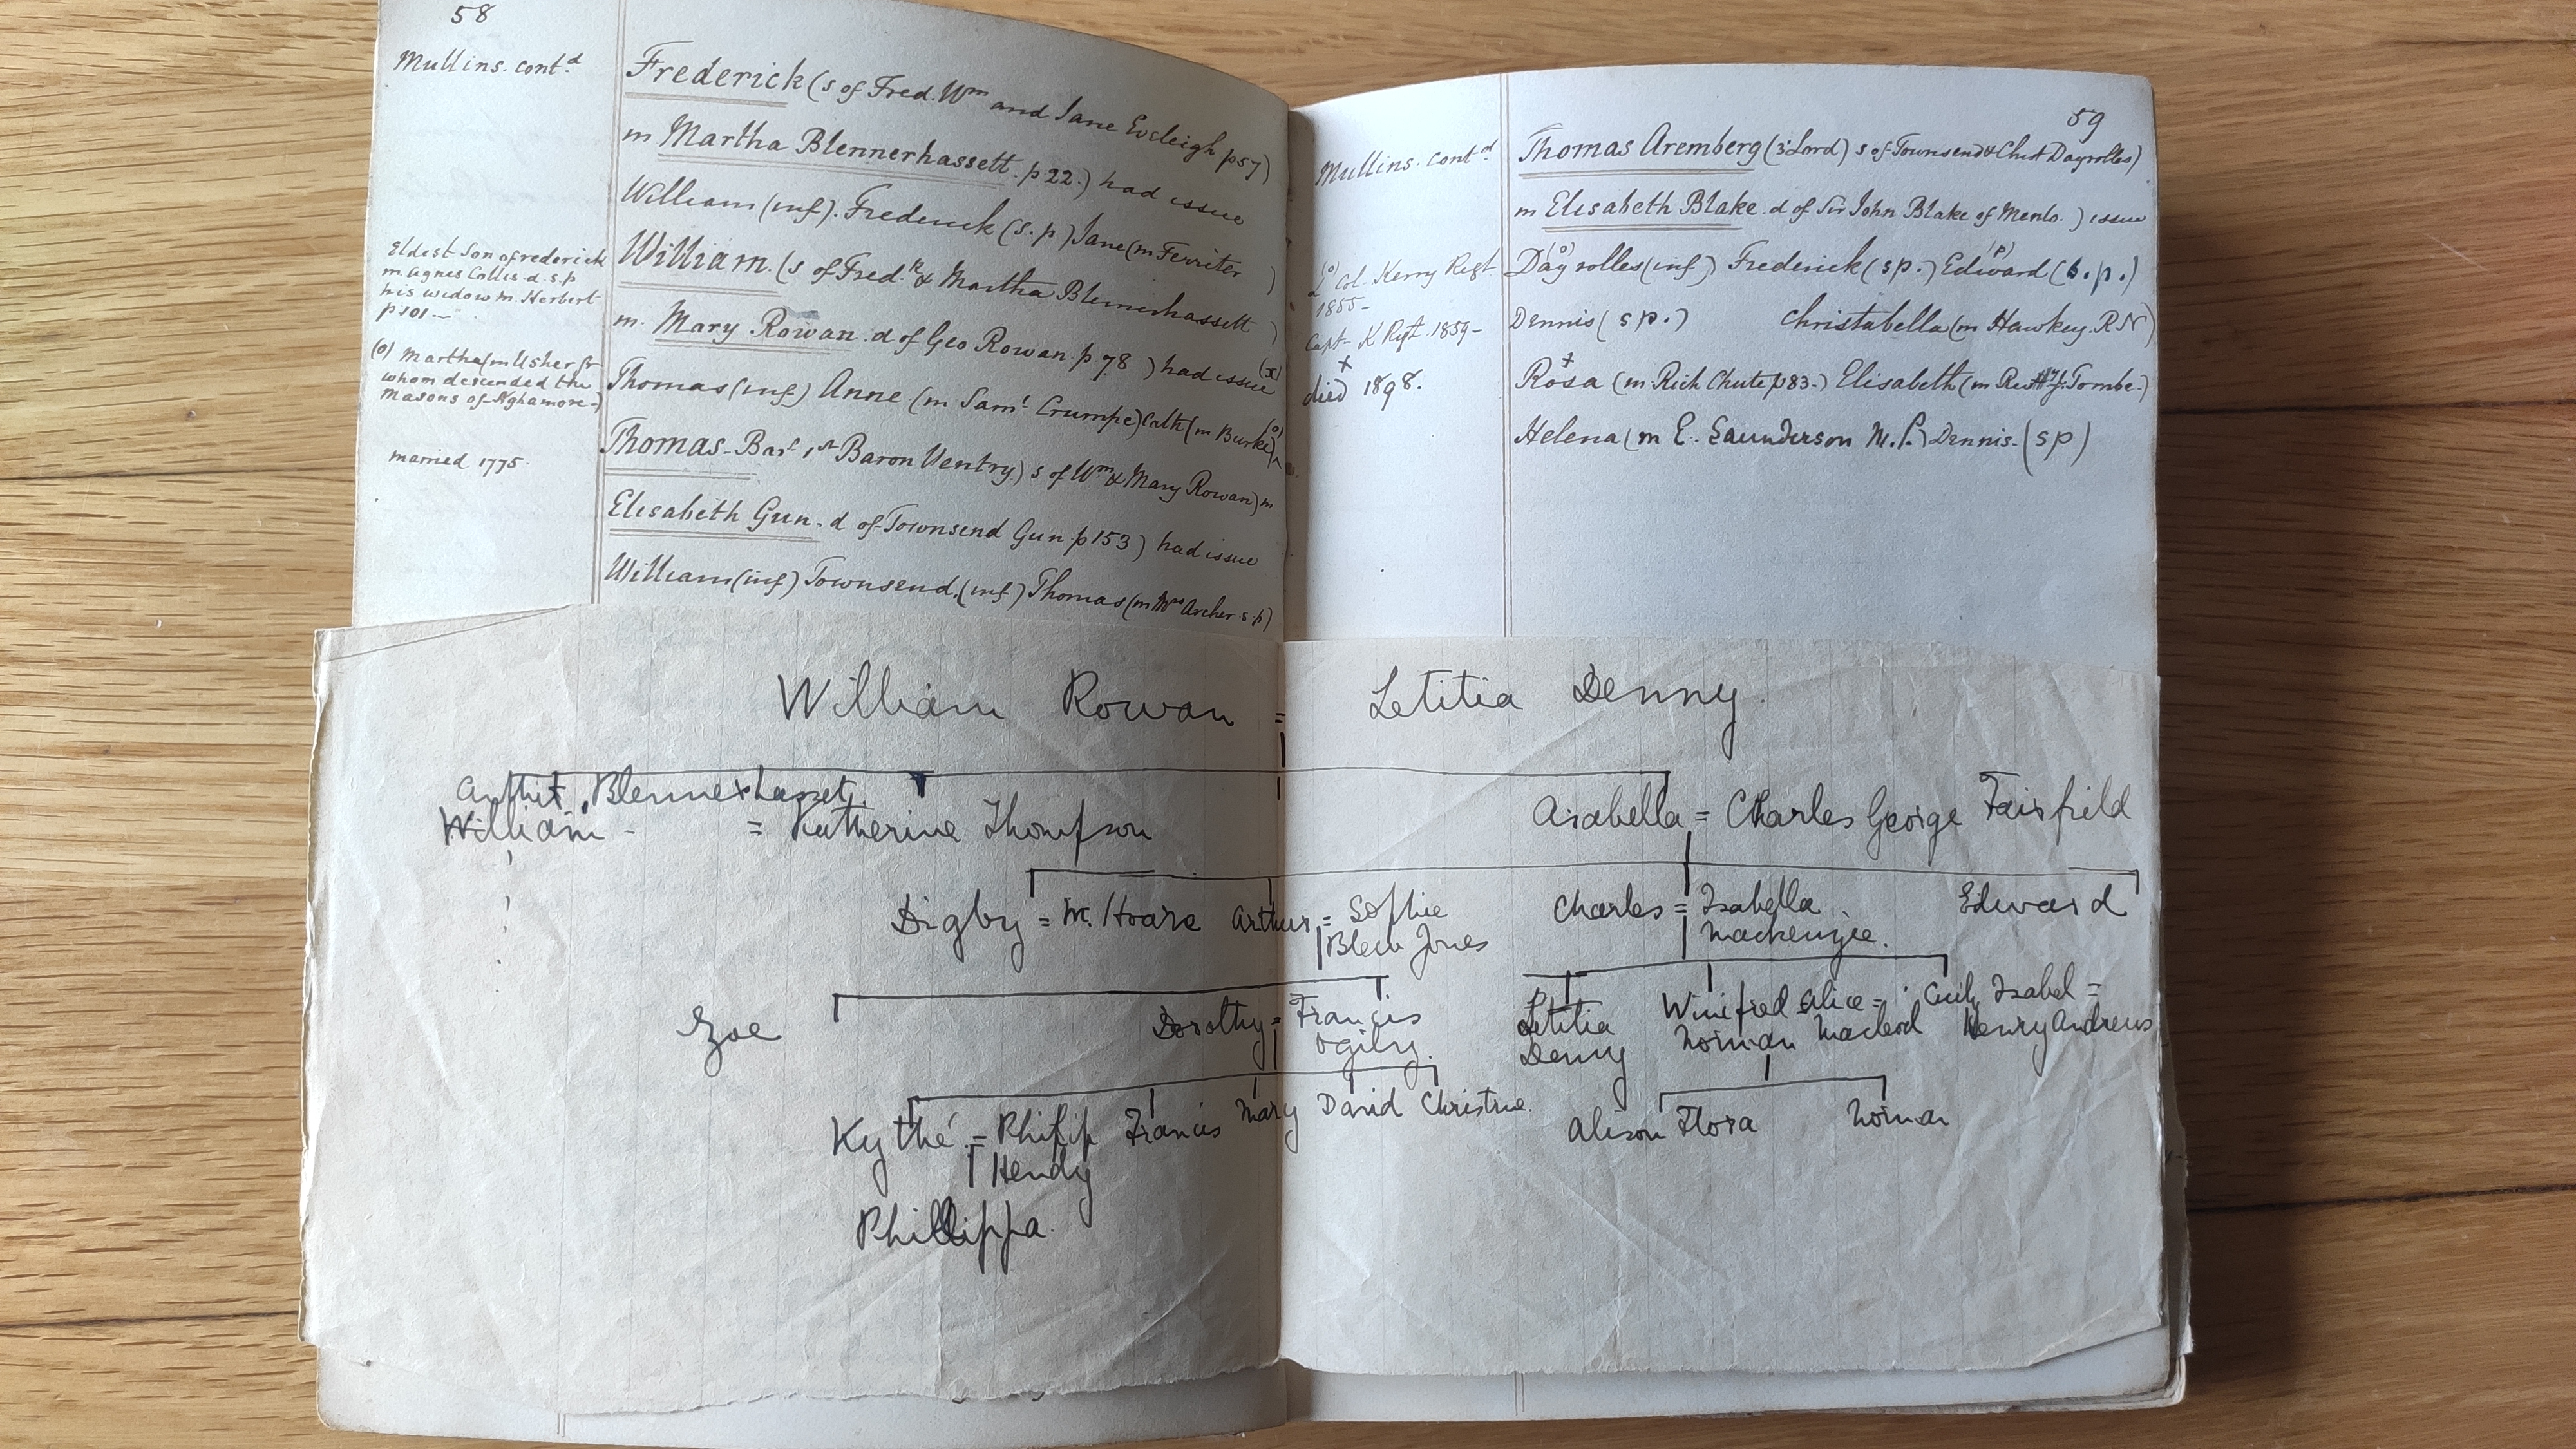 58
Mullins. contd
Frederick (s of Fred. Wm and Jane Eveleigh p57)
m Martha Blennerhassett. p22.) had issue
William (inf). Frederick (s.p) Jane (m Ferriter )
William. (s of Fred.k & Martha Blennerhassett )
m. Mary Rowan. d of Geo Rowan. p 78 ) had issue (x)
Thomas (inf) Anne (m Saml Crumpe) Cath (m Burke) (o)
Thomas - Bart 1st Baron Ventry) s of Wm & Mary Rowan) m
Elisabeth Gun. d of Townsend Gun p153) had issue
William (inf) Townsend. (inf) Thomas (m Mrs Archer s.p)
Eldest Son of frederick
m. Agnes Collis. d. s.p
his widow m. Herbert
p101 —
(o) Martha (m Usher fr
whom descended the
Masons of Aghamore-)
married 1775.
59
Mullins. contd
Thomas Aremberg (3d Lord) s of Townsend & Christ Dayrolles)
m Elisabeth Blake. d of Sir John Blake of Menlo. ) issue
(o) (p)
Dayrolles (inf) Frederick (sp.) Edward (s.p.)
Dennis (sp.) Christabella (m Hawkey. RN)
Rosa (m Rich Chute p83.) Elisabeth (m Rev Hy J. Tombe.)
Helena (m E. Saunderson M.P.) Dennis- (sp)
(o)
Lt Col. Kerry Regt
1855-
Capt- K Rgt. 1859-
x
died 1898.
William Rowan = Letitia Denny.
Arthur Blennerhasset.
William - = Katherine Thompson
Arabella = Charles George Fairfield
Digby = M. Hoare Arthur = Sophie Blew Jones
Charles = Isabella Mackenzie. Edward
Zoe Dorothy = Francis Ogilvy.
Letitia Denny Winifred Alice = Norman Macleod Cecily Isabel = Henry Andrews
Kythé = Philip Hendy Francis Mary David Christine.
Alison Flora Norman
Phillippa.